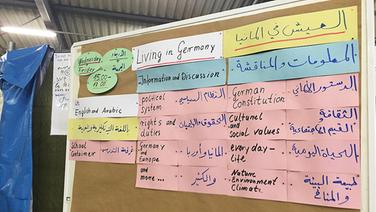 Wednesday
Friday
15:00-
الأربعاء
الجمعة
Living in Germany
العيش في ألمانيا
Information and Discussion
المعلومات والمناقشة
in
English and Arabic
political
system
النظام السياسي
German
Constitution
الدستور الألماني
rights and
duties
Cultural
and
Social values
الثقافة
القيم الاجتماعية
School
Container
Germany
and
Europe
ألمانيا وأوربا
every day -
Life
الحياة اليومية
and
more...
والكثير
Nature
Environment
Climate
طبيعة البيئة
والمناخ